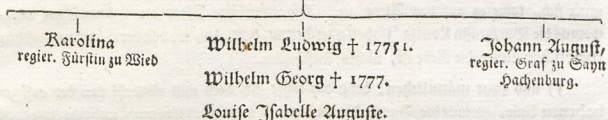 Karolina
regier. Fürstin zu Wied
Wilhelm Ludwig † 17751.
Wilhelm Georg † 1777.
Louise Isabelle Auguste.
Johann August,
regier. Graf zu Sayn
Hachenburg.